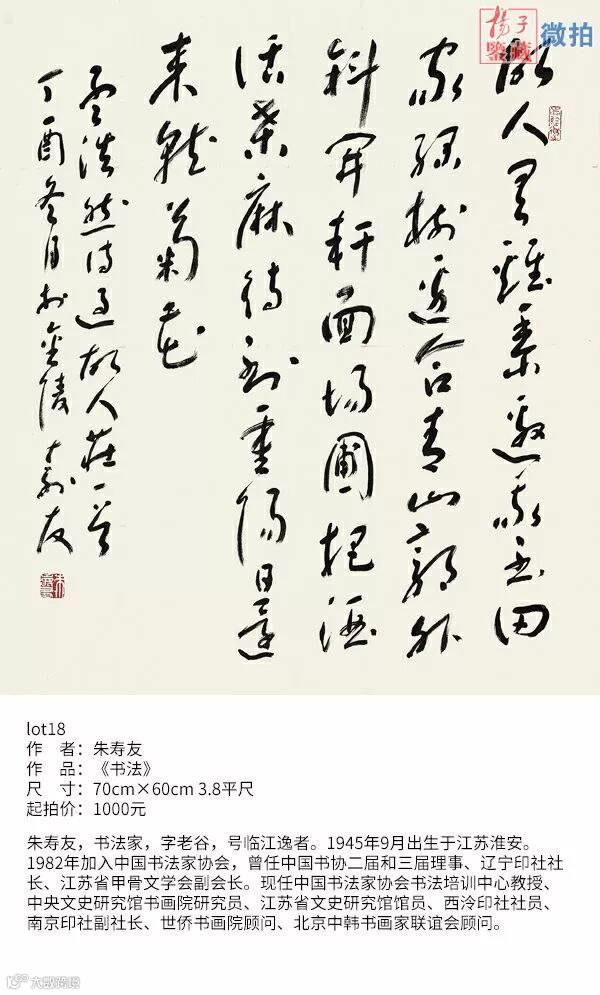 楊子
鑒藏
微拍
故人具雞黍邀我至田
家绿樹邊合青山郭外
斜開軒面場圃把酒
話桑麻待到重陽日還
來就菊花
孟浩然詩過故人莊一首
丁酉冬月於金陵壽友
lot18
作 者：朱寿友
作 品：《书法》
尺 寸：70cm×60cm 3.8平尺
起拍价：1000元
朱寿友，书法家，字老谷，号临江逸者。1945年9月出生于江苏淮安。
1982年加入中国书法家协会，曾任中国书协二届和三届理事、辽宁印社社
长、江苏省甲骨文学会副会长。现任中国书法家协会书法培训中心教授、
中央文史研究馆书画院研究员、江苏省文史研究馆馆员、西泠印社社员、
南京印社副社长、世侨书画院顾问、北京中韩书画家联谊会顾问。
大数跨境